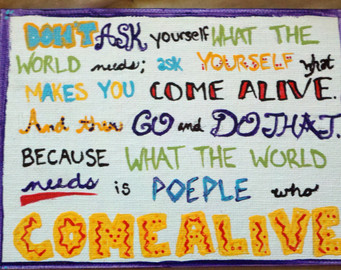 DON'T ASK yourself WHAT THE
WORLD needs; ask YOURSELF what
MAKES YOU COME ALIVE.
And then GO and DO THAT.
BECAUSE WHAT THE WORLD
needs is POEPLE who
COME ALIVE